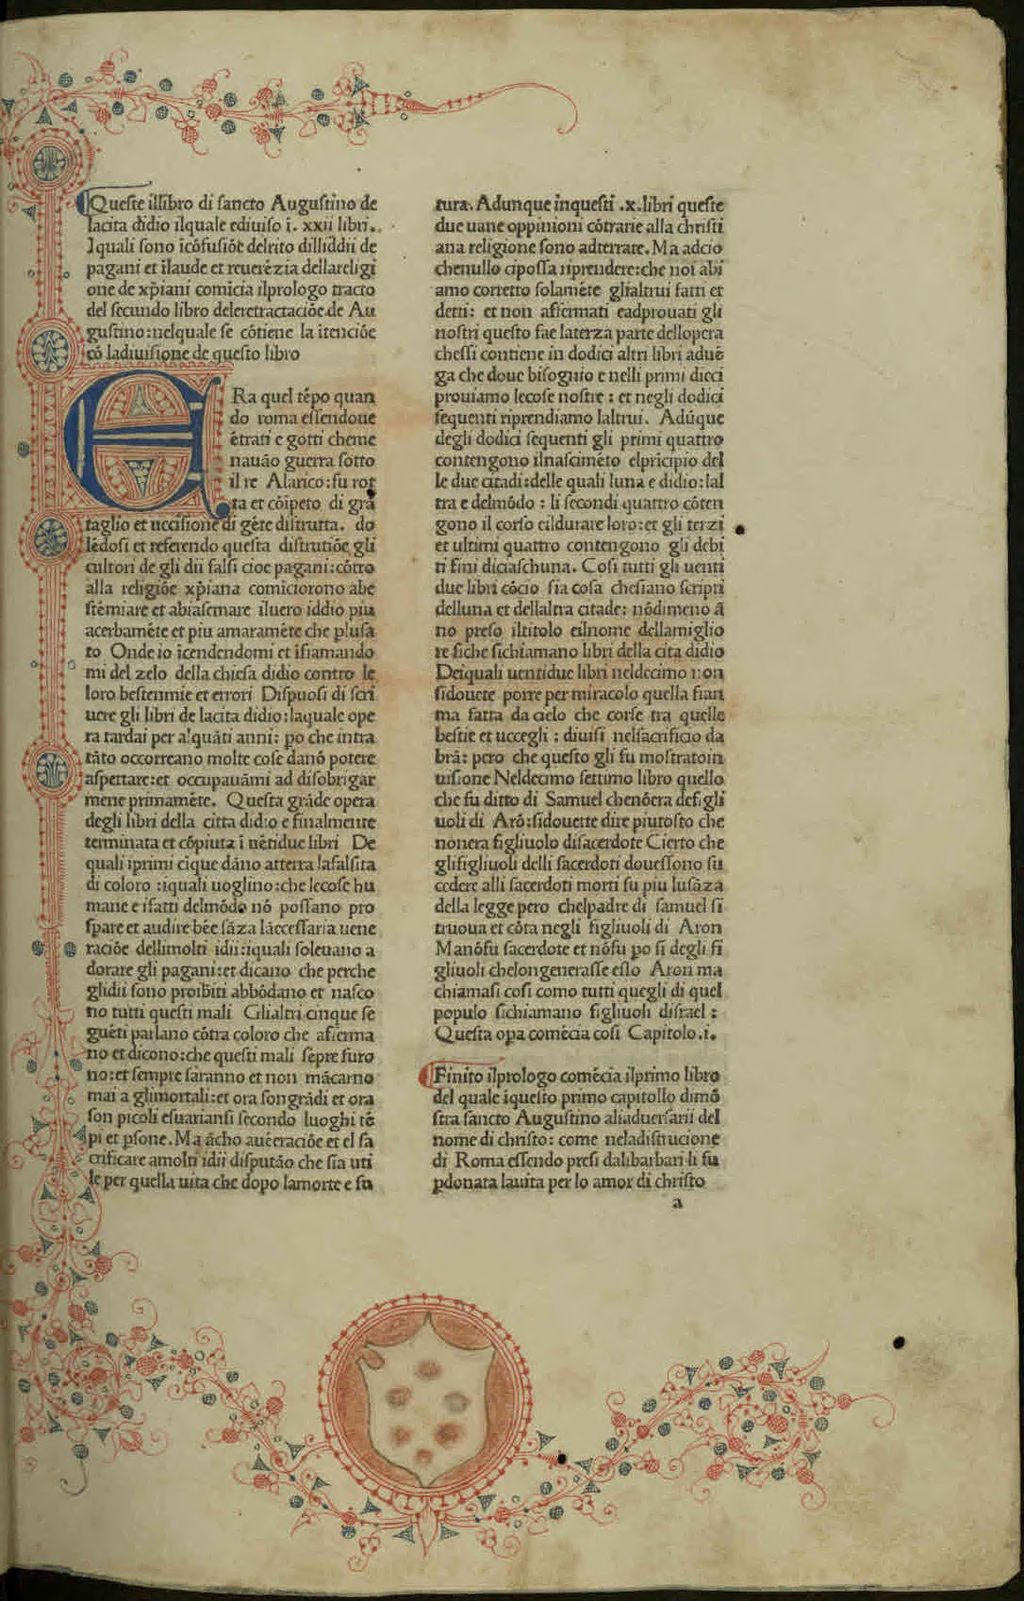 Queste illibro di sancto Augustino de
lacita didio ilquale ediuiso ī. xxii libri.
Iquali sono īcōfusiōē delrito dilliddii de
pagani et īlaude et reuerēzia dellareligi
one de xp̄iani comicia ilprologo tracto
del secundo libro deleretractaciōe.de Au
gustino:nelquale se cōtiene la ītenciōe
cō ladiuisione de questo libro
ERa quel tēpo quan
do roma essendoue
ētrati e gotti cheme
nauāo guerra sotto
il re Alarico:fu rot
ta et cōīpeto di grā
taglio et uccisione di gēte distrutta. do
lēdosi et referendo questa distrutiōe gli
cultori de gli dii falsi cioe pagani:cōtro
alla religiōe xp̄iana comiciorono abe
stēmiare et abiasemare iluero iddio piu
acerbamēte et piu amaramēte che plusa
to Onde io īcendendomi et īfiamando
mi del zelo della chiesa didio contro le
loro bestemmie et errori Dispuosi di scri
uere gli libri de lacita didio:laquale ope
ra tardai per alquāti anni: po che intra
tāto occorreano molte cose danō potere
aspettare:et occupauāmi ad disobrigar
mene primamēte. Questa grāde opera
degli libri della citta didio e finalmente
terminata et cōpiuta ī uētidue libri De
quali iprimi cīque dāno atterra lafalsita
di coloro :iquali uoglino:che lecose hu
mane e ifatti delmōdo nō possano pro
spare et audire bēe sāza lāecessaria uene
raciōe dellimolti idii:iquali soleuano a
dorare gli pagani:et dicano che perche
glidii sono proibiti abbōdano et nasco
no tutti questi mali Glialtri cinque se
guēti parlano cōtra coloro che aferma
no et dicono:che questi mali sēpre furo
no:et sempre saranno et non mācarno
mai a glimortali:et ora songrādi et ora
son picoli esuariansi secondo luoghi tē
pi et psone. Ma ācho aueraciōe et el sa
crificare amolti idii disputāo che sia uti
le per quella uita che dopo lamorte e fu
tura. Adunque inquesti .x.libri queste
due uane oppinioni cōtrarie alla christi
ana religione sono adterrate. Ma adcio
chenullo ciposſa riprendere:che noi abi
amo corretto solamēte glialtrui fatti et
detti: et non afermati eadprouati gli
nostri questo fae laterza parte dellopera
chessi contiene in dodici altri libri aduē
ga che doue bisognio e nelli primi dieci
prouiamo lecose nostre : et negli dodici
sequenti riprendiamo laltrui. Adūque
degli dodici sequenti gli primi quattro
contengono ilnascimēto elpricipio del
le due citadi:delle quali luna e didio:lal
tra e delmōdo : li secondi quattro cōten
gono il corso eildurare loro:et gli terzi
et ultimi quattro contengono gli debi
ti fini diciaschuna. Cosi tutti gli uenti
due libri cōcio sia cosa chesiano scripti
delluna et dellaltra citade: nōdimeno ā
no preso iltitolo eilnome dellamiglio
re siche sichiamano libri della cita didio
Deiquali uentidue libri neldecimo non
sidouete porre per miracolo quella fiam
ma fatta da cielo che corse tra quelle
bestie et uccegli : diuisi nelsacrificio da
brā: pero che questo gli fu mostratoin
uisione Neldecimo settimo libro quello
che fu ditto di Samuel chenōera defigli
uoli di Arō:sidouette dire piutosto che
nonera figliuolo disacerdote Cierto che
glifigliuoli delli sacerdoti douessono su
cedere alli sacerdoti morti fu piu lusāza
della legge pero chelpadre di samuel si
truoua et cōta negli figliuoli di Aron
Manōfu sacerdote et nōfu po si degli fi
gliuoli chelongenerasse eslo Aron ma
chiamasi cosi como tutti quegli di quel
populo sichiamano figliuoli disrael :
Questa opa comēcia cosi Capitolo.i.
Finito ilprologo comēcia ilprimo libro
del quale īquesto primo capitollo dimō
stra sancto Augustino aliaduersarii del
nome di christo: come neladistrucione
di Roma essendo presi dalibarbari li fu
pdonata lauita per lo amor di christo
a